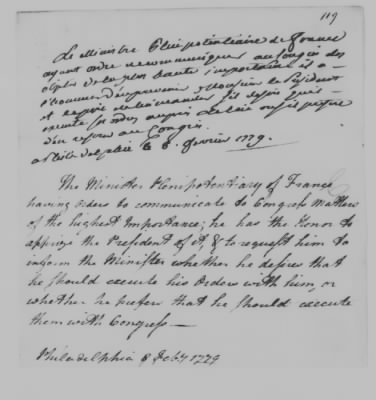 119
Le Ministre Plenipotentiaire de France
ayant ordre de communiquer au Congrès des
objets de la plus haute importance il a
l'honneur d'en prevenir Monsieur le President
et de lui demander s'il desire qu'il
execute ses ordres auprès de lui ou s'il prefere
d'en au Congrès.
à Philadelphie le 8. fevrier 1779.
The Minister Plenipotentiary of France
having orders to communicate to Congress Matters
of the highest Importance; he has the Honor to
apprize the President of it, & to request him to
inform the Minister whether he desires that
he should execute his Orders with him, or
whether he prefers that he should execute
them with Congress —
Philadelphia 8 Feby 1779